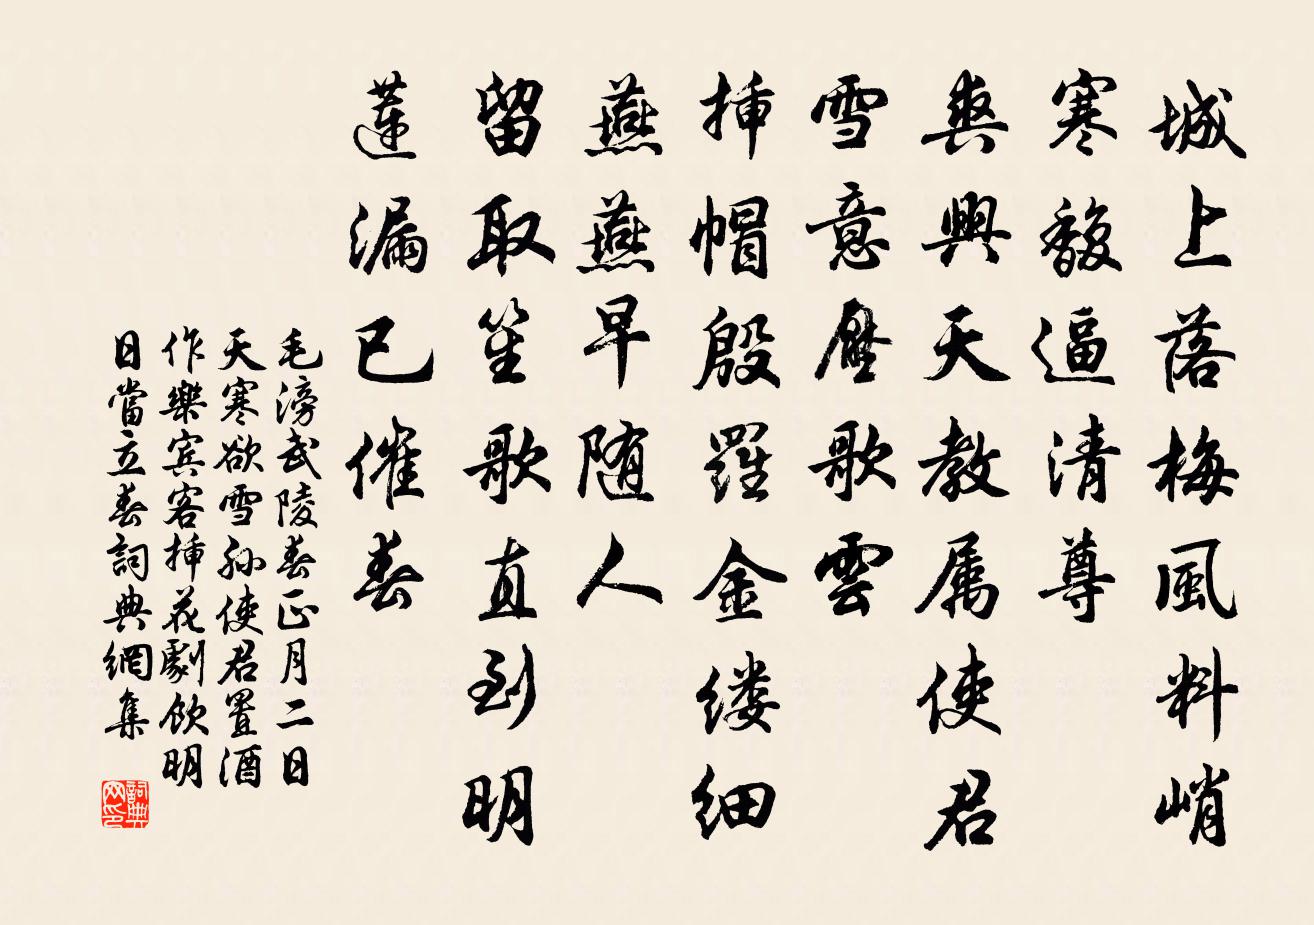 城上落梅風料峭
寒馥逼清尊
爽興天教属使君
雪意壓歌雲
挿帽殷羅金缕细
燕燕早随人
留取笙歌直到明
蓮漏已催春
毛滂武陵春正月二日
天寒欲雪孫使君置酒
作樂宾客挿花劇飲明
日當立春詞典網集
詞典
网印